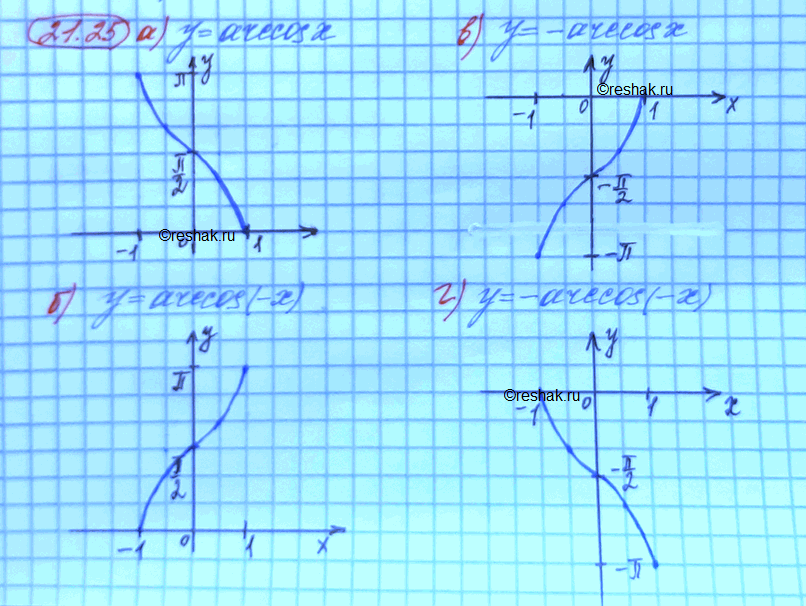 21.25 а) y = arccos x
y
π
π/2
©reshak.ru
-1 0 1
в) y = -arccos x
y
©reshak.ru
-1 0 1 x
-π/2
-π
б) y = arccos(-x)
y
π
π/2
-1 0 1 x
г) y = -arccos(-x)
y
©reshak.ru
-1 0 1 x
-π/2
-π